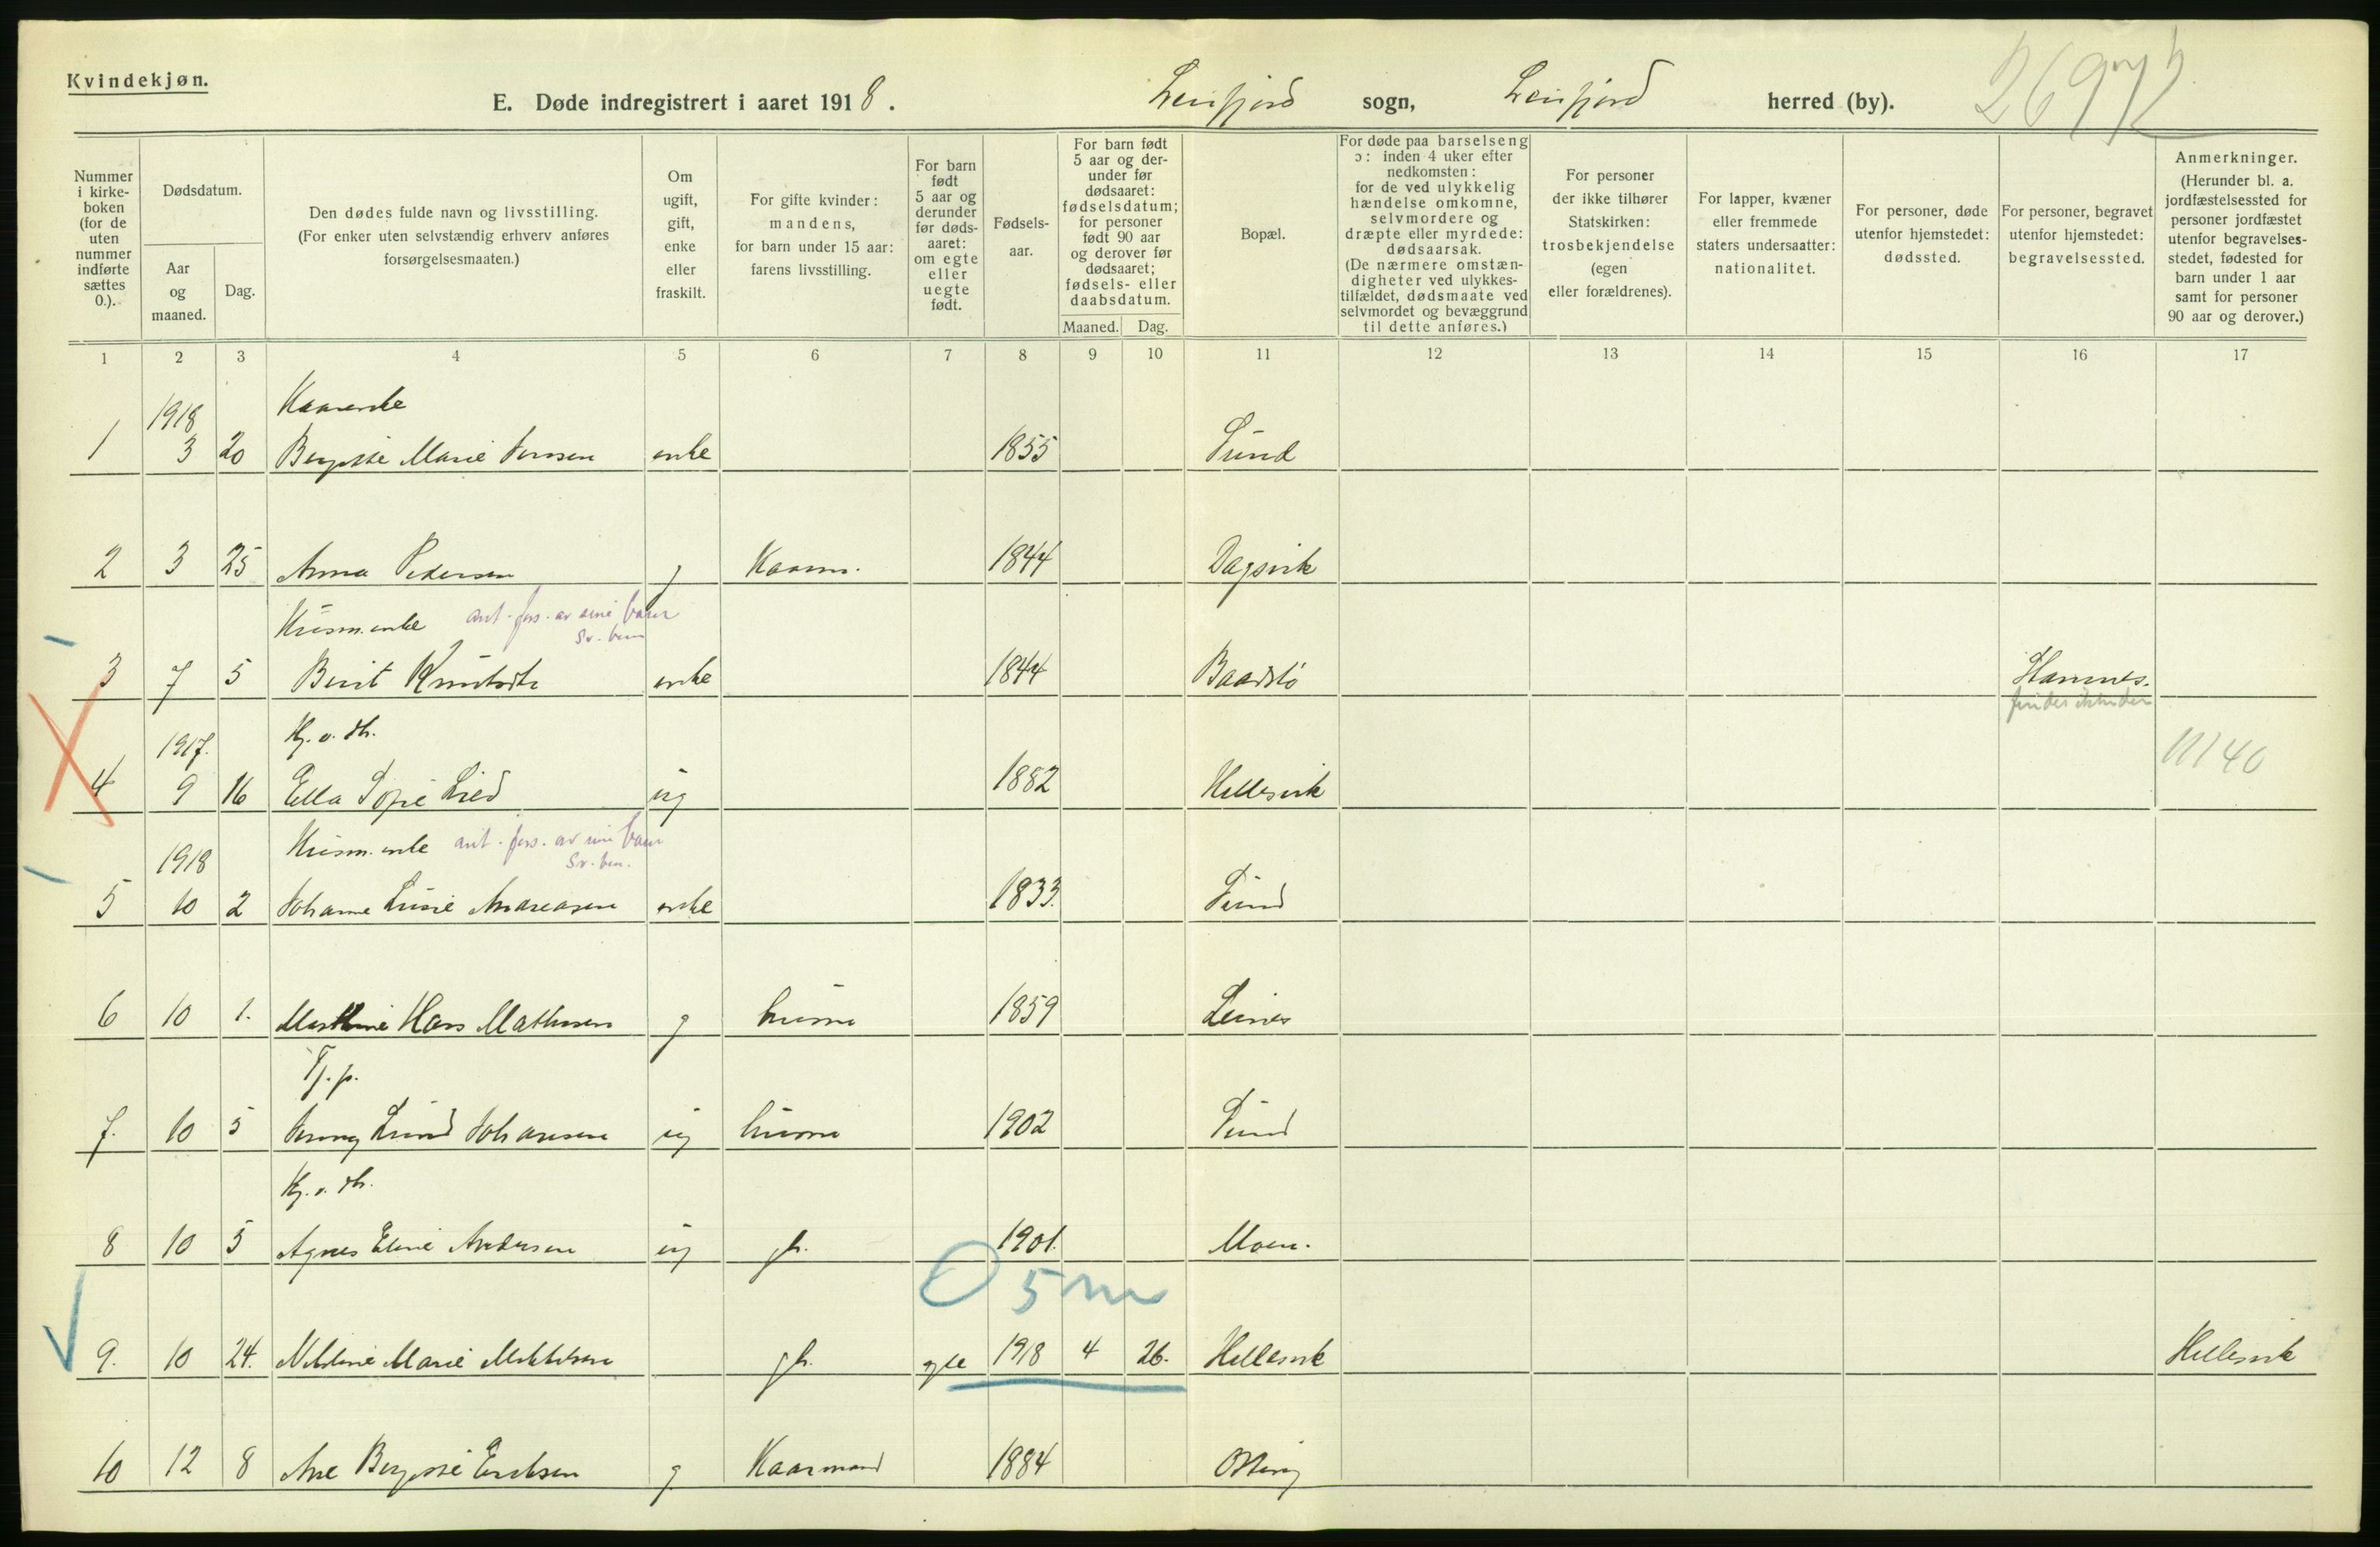 Kvindekjøn.
E. Døde indregistrert i aaret 1918. Leirfjord sogn, Leirfjord herred (by).
Nummer i kirkeboken (for de uten nummer indførte sættes 0.).
Dødsdatum.
Aar og maaned.
Dag.
Den dødes fulde navn og livsstilling.
(For enker uten selvstændig erhverv anføres
forsørgelsesmaaten.)
Om ugift, gift, enke eller fraskilt.
For gifte kvinder: mandens, for barn under 15 aar: farens livsstilling.
For barn født 5 aar og derunder før dødsaaret: om egte eller uegte født.
Fødselsaar.
For barn født 5 aar og derunder før dødsaaret: fødselsdatum; for personer født 90 aar og derover før dødsaaret; fødsels- eller daabsdatum.
Maaned. Dag.
Bopæl.
For døde paa barselseng ɔ: inden 4 uker efter nedkomsten: for de ved ulykkelig hændelse omkomne, selvmordere og dræpte eller myrdede: dødsaarsak. (De nærmere omstændigheter ved ulykkestilfældet, dødsmaate ved selvmordet og bevæggrund til dette anføres.)
For personer der ikke tilhører Statskirken: trosbekjendelse (egen eller forældrenes).
For lapper, kvæner eller fremmede staters undersaatter: nationalitet.
For personer, døde utenfor hjemstedet: dødssted.
For personer, begravet utenfor hjemstedet: begravelsessted.
Anmerkninger. (Herunder bl. a. jordfæstelsessted for personer jordfæstet utenfor begravelsesstedet, fødested for barn under 1 aar samt for personer 90 aar og derover.)
1 2 3 4 5 6 7 8 9 10 11 12 13 14 15 16 17
1918 Kaarenke
1 3 20 Marie enke 1855 Sund
2 3 25 Anna Pedersen g Kaarm. 1844 Dagsvik
Husm.enke ant. fors. av sine barn
3 7 5 Berit enke 1844 Baadstø Hamnes.
1917. Hj. v. dh.
11140
4 9 16 Ella Sofie Lied ug 1882 Hellesvik
1918 Husm.enke ant. fors. av sine barn
5 10 2 Johanne Andreasen enke 1833. Sund
6 10 1. Hans Mathisen g husm 1859 Leines
Tj. p.
7. 10 5 Lund Johansen ug husm 1902 Sund
Hj. v. dh.
8 10 5 Agnes Eline Andersen ug gb. 1901. Moen.
0 5 m
9. 10 24. Marie Mikkelsen gb. egte 1918 4 26. Hellesvik Hellesvik
10 12 8 Ane Eriksen g Kaarmand 1884